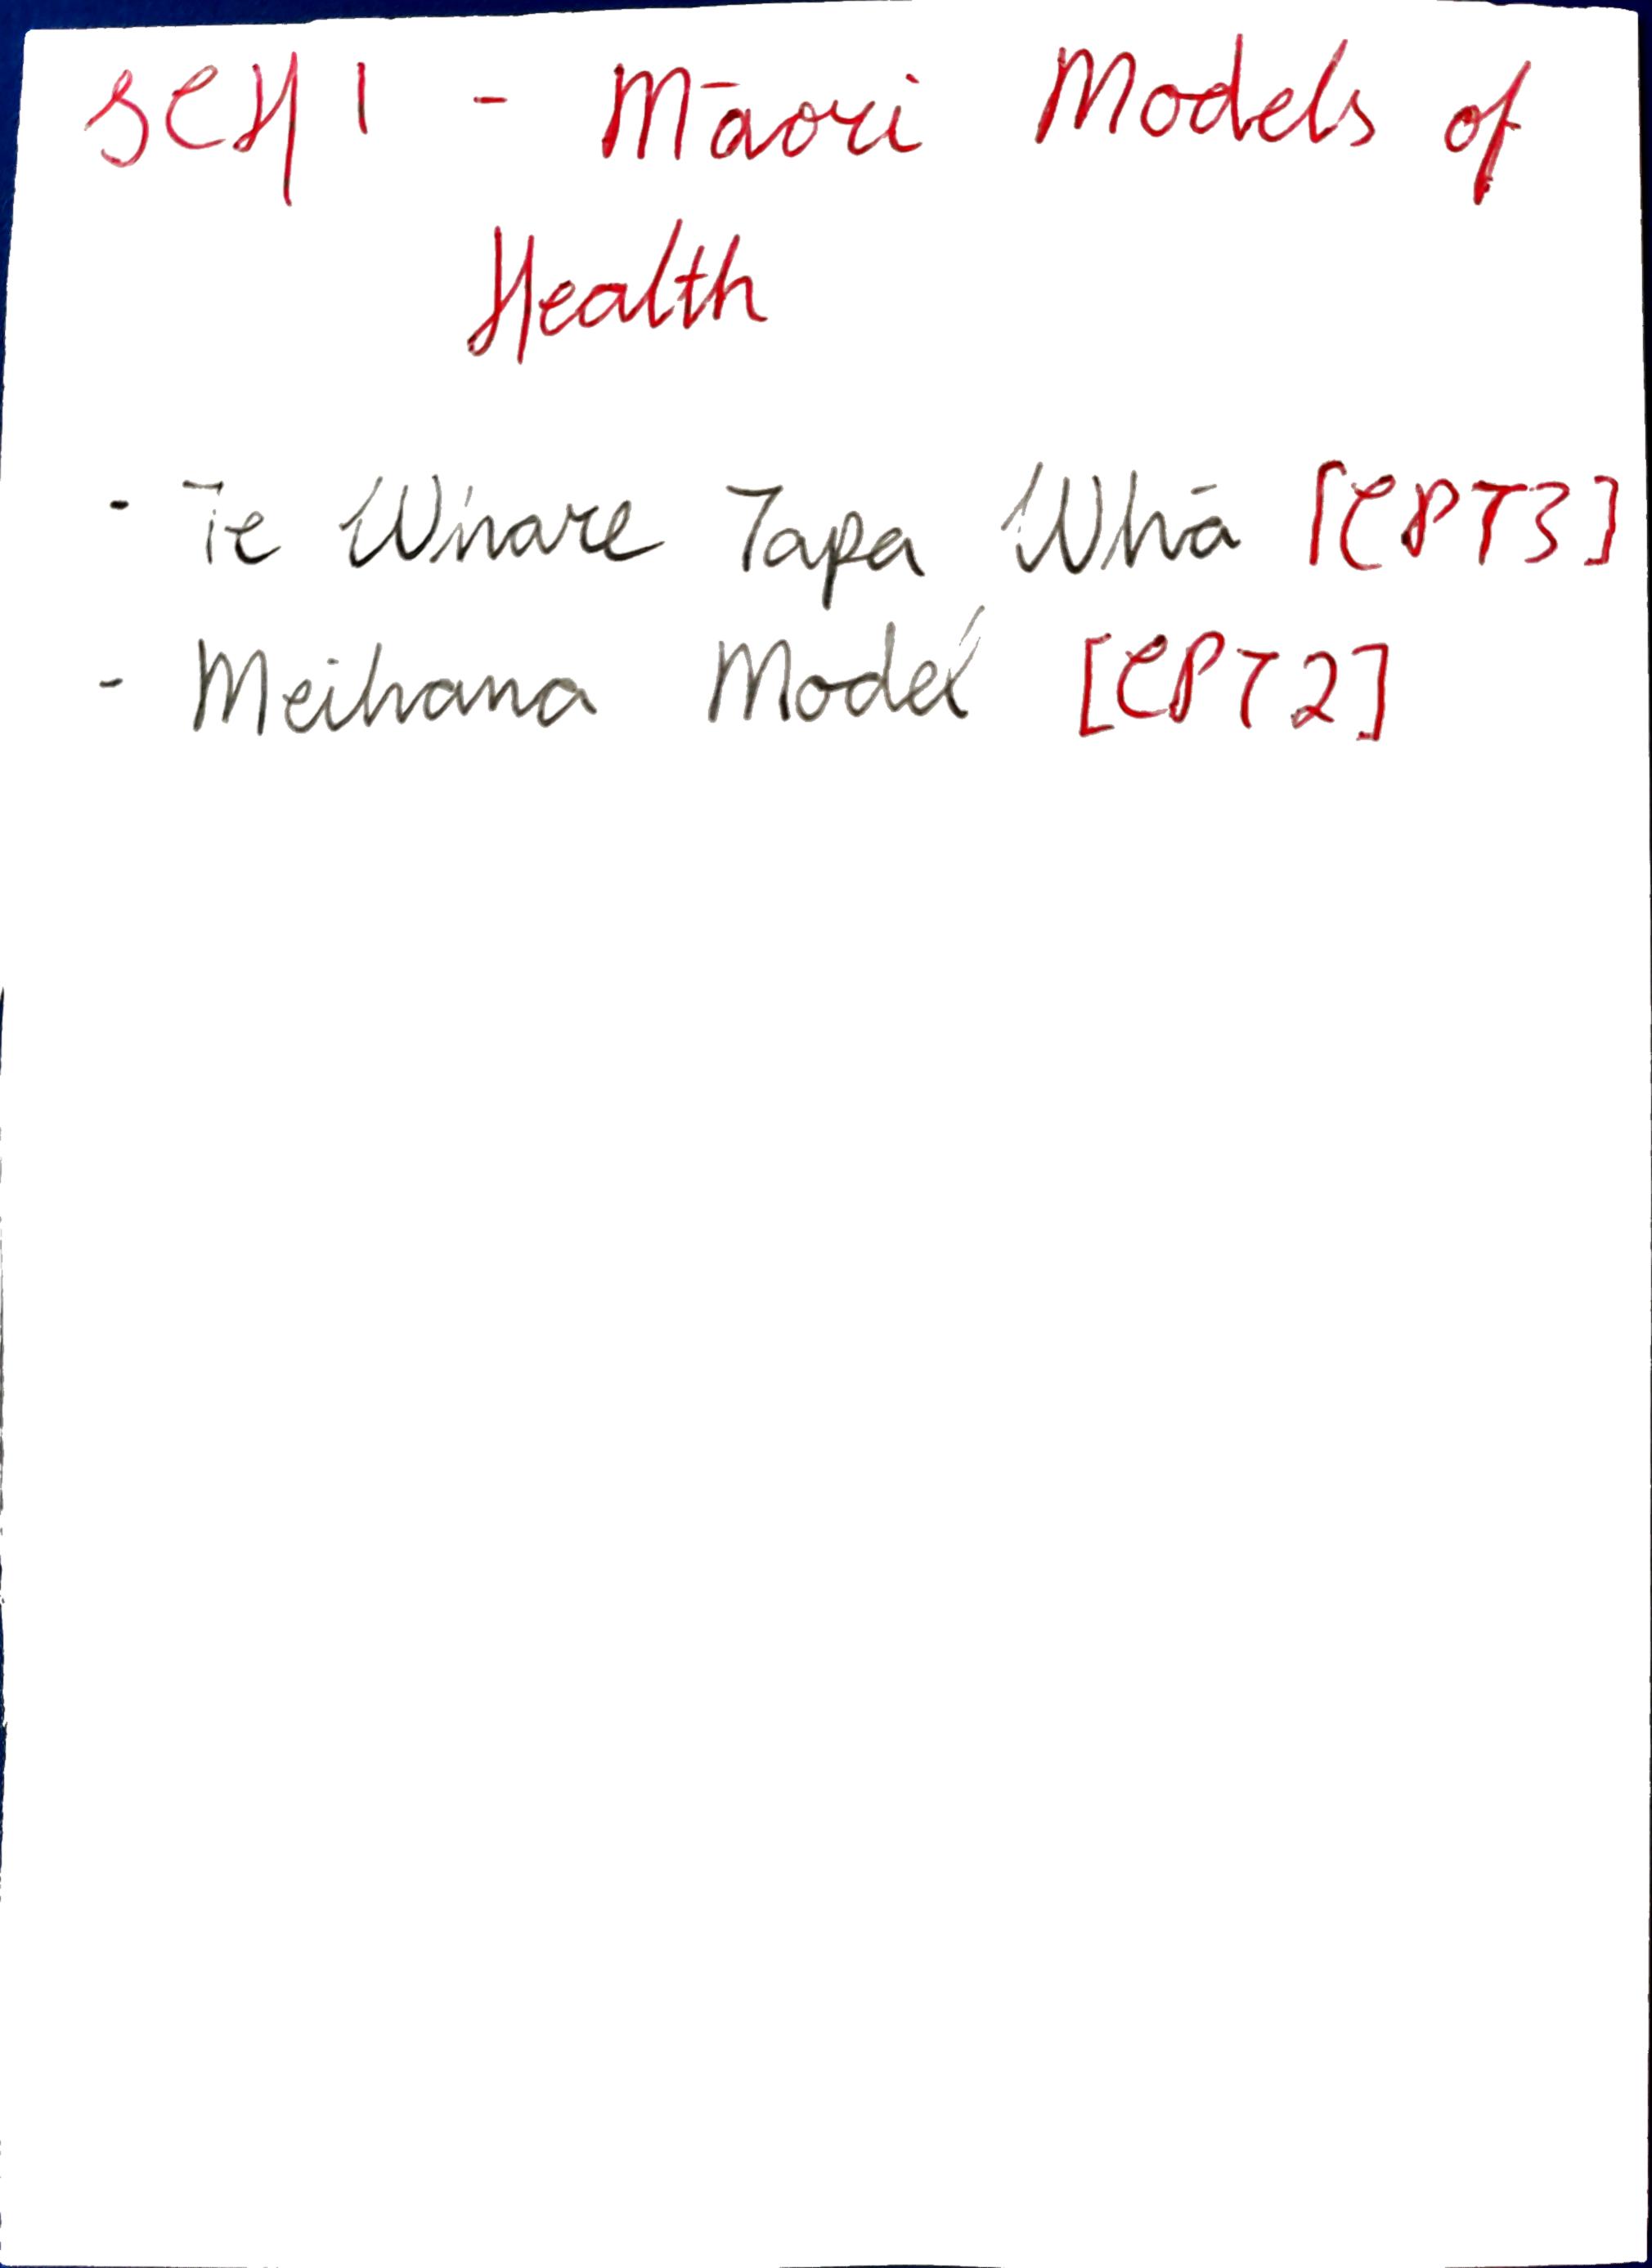 SCH 1 - Māori Models of
Health
- Te Whare Tapa Whā [CPT3]
- Meihana Model [CPT2]